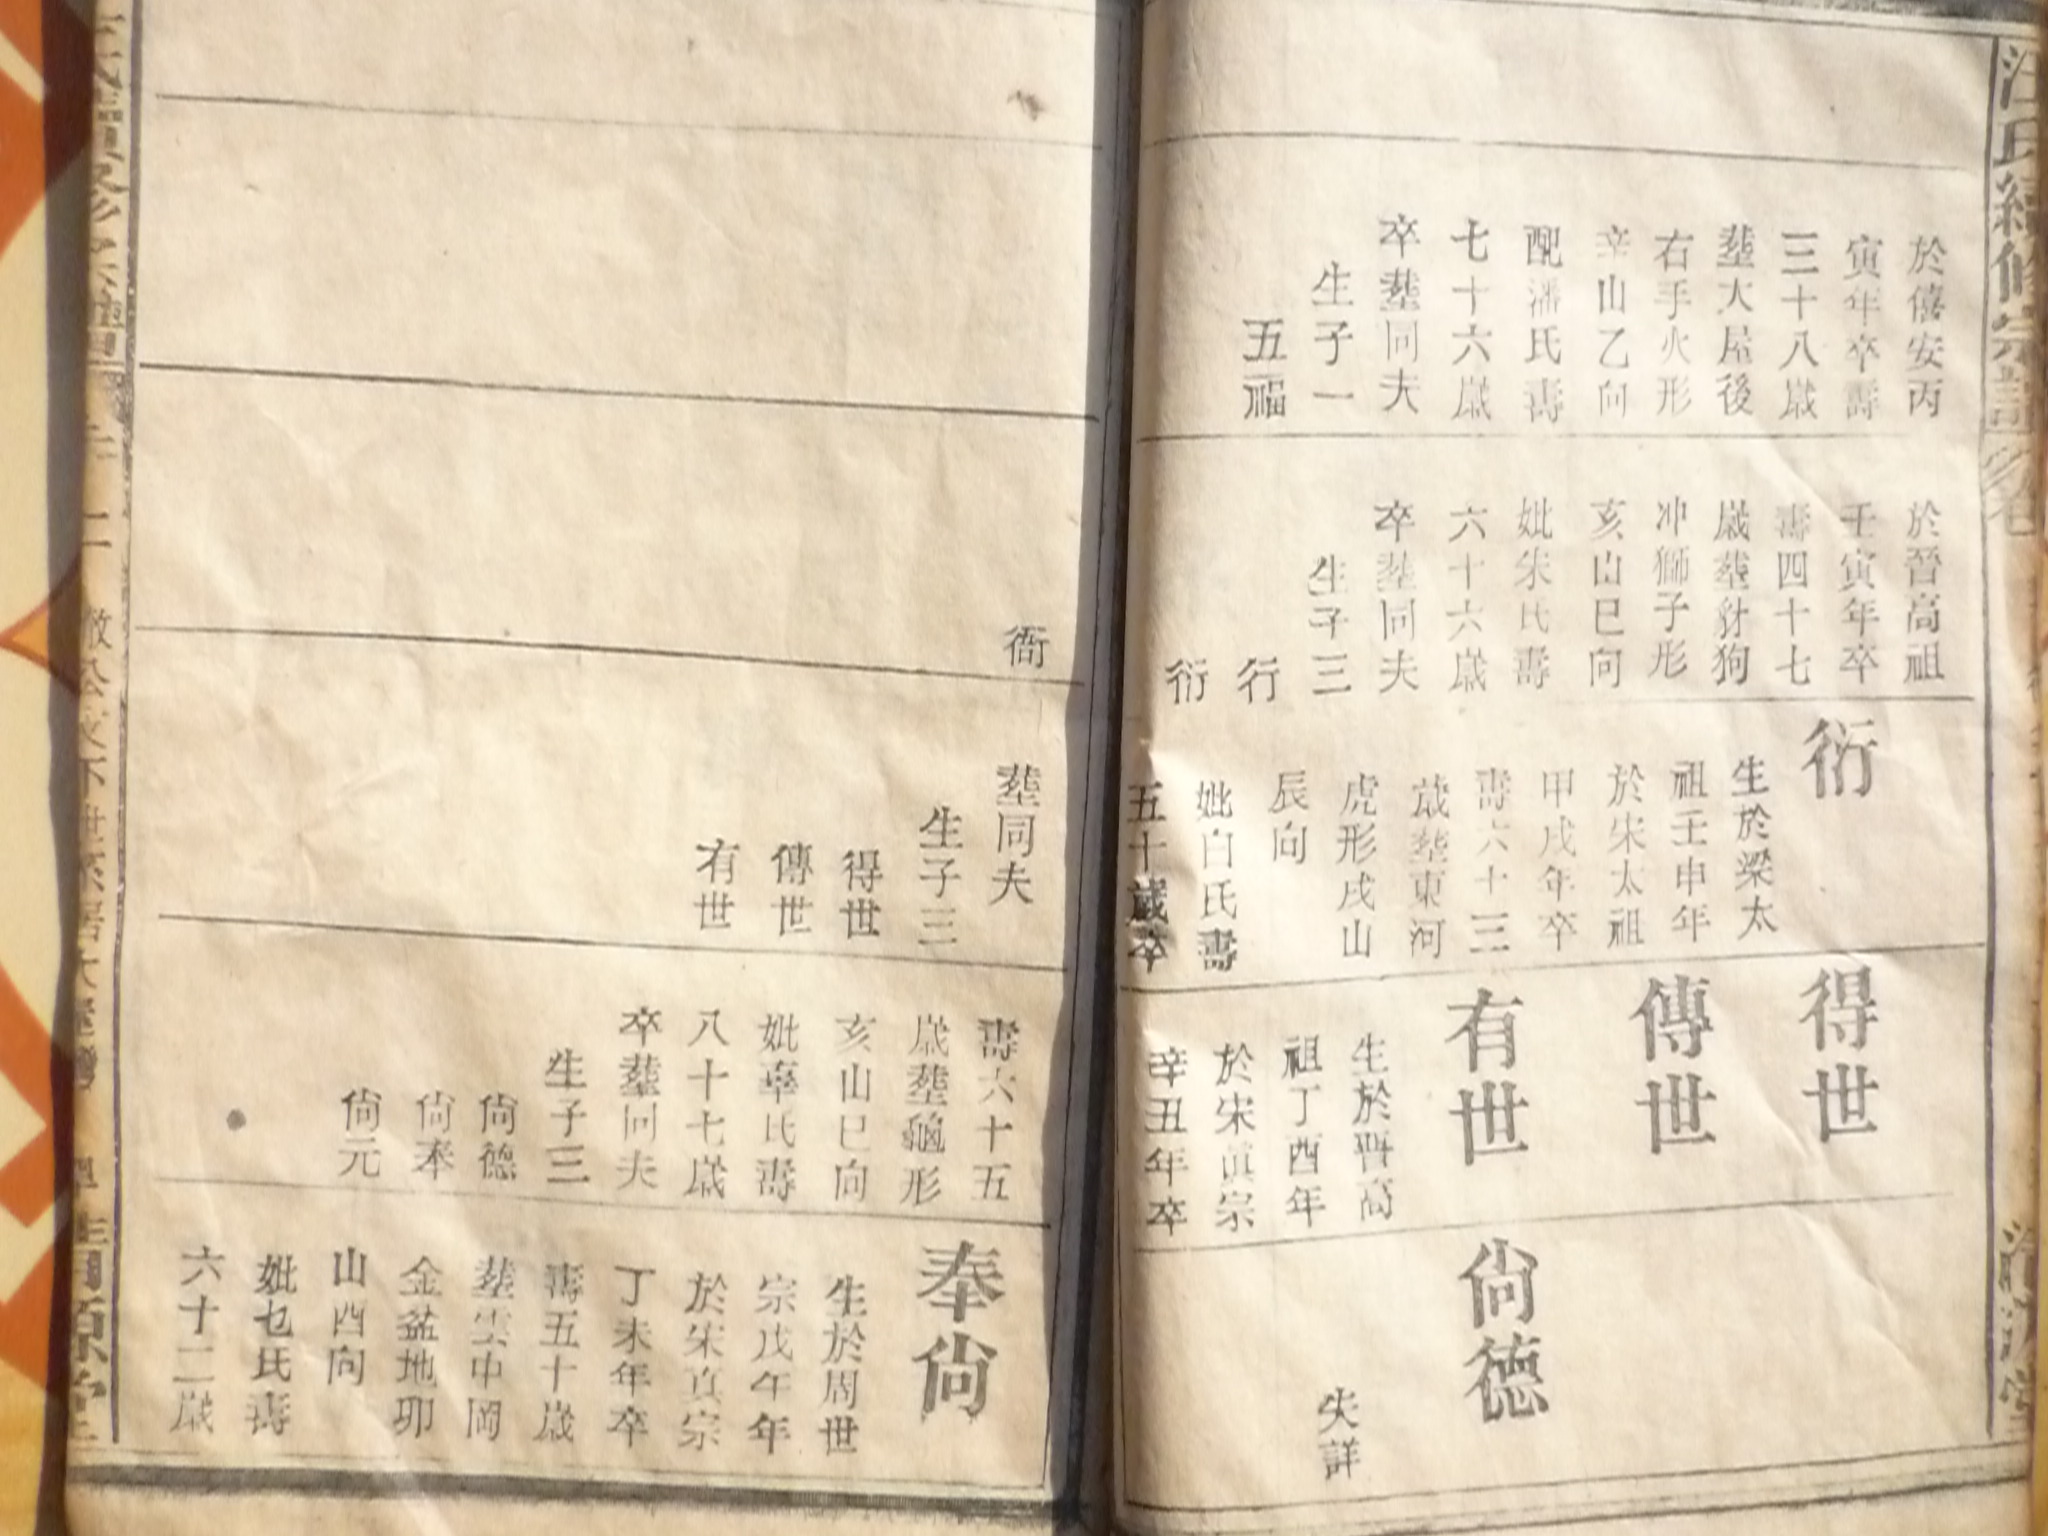 汪氏續修宗譜
於僖安丙
寅年卒壽
三十八歲
塟大屋後
右手火形
辛山乙向
配潘氏壽
七十六歲
卒塟同夫
生子一
五福
於晉高祖
壬寅年卒
壽四十七
歲塟豺狗
冲獅子形
亥山巳向
妣朱氏壽
六十六歲
卒塟同夫
生子三
行
衍
衍
生於梁太
祖壬申年
於宋太祖
甲戌年卒
壽六十三
歲塟東河
虎形戌山
辰向
妣白氏壽
五十歲卒
得世
傳世
有世
生於晉高
祖丁酉年
於宋真宗
辛丑年卒
尙德
失詳
衙
塟同夫
生子三
得世
傳世
有世
壽六十五
歲塟龜形
亥山巳向
妣辜氏壽
八十七歲
卒塟同夫
生子三
尙德
尙奉
尙元
奉尙
生於周世
宗戊午年
於宋真宗
丁未年卒
壽五十歲
塟雲中岡
金盆地卯
山酉向
妣乜氏壽
六十二歲